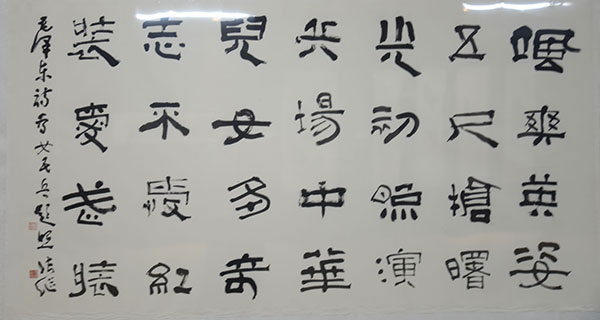 颯爽英姿
五尺槍曙
光初照演
兵場中華
兒女多奇
志不愛紅
裝愛武裝
毛澤東詩為女民兵題照